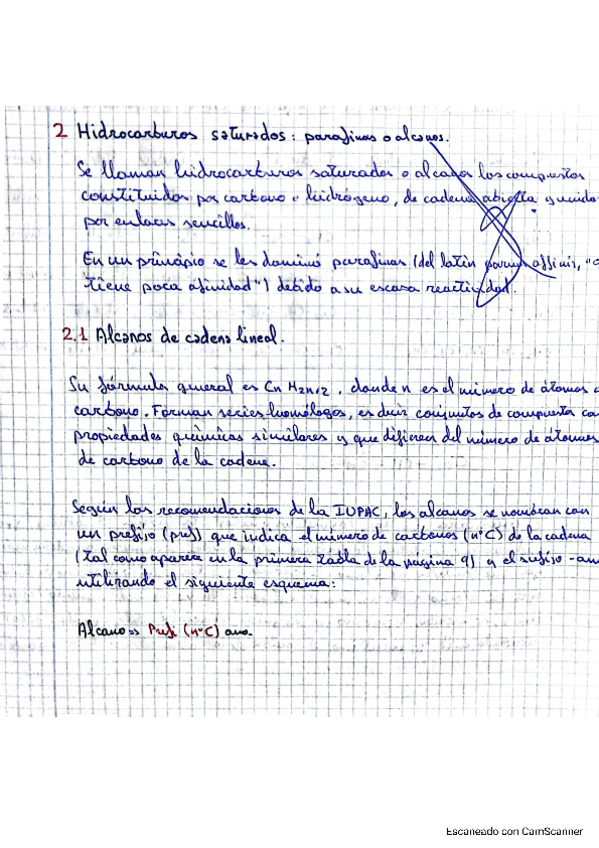 2 Hidrocarburos saturados: parafinas o alcanos.
Se llaman hidrocarburos saturados o alcanos los compuestos
constituidos por carbono e hidrógeno, de cadena abierta y unido
por enlaces sencillos.
En un principio se les dominó parafinas (del latín parum affinis,
tiene poca afinidad") debido a su escasa reactividad.
2.1 Alcanos de cadena lineal.
Su fórmula general es Cn H2n+2, donde n es el número de átomos
carbono. Forman series homólogas, es decir conjuntos de compuestos
propiedades químicas similares y que difieren del número de átomos
de carbono de la cadena.
Según las recomendaciones de la IUPAC, los alcanos se nombran con
un prefijo (pref) que indica el número de carbonos (nºC) de la cadena
(tal como aparece en la primera tabla de la página 9) y el sufijo -an
utilizando el siguiente esquema:
Alcano => Pref. (nºC) ano.
Escaneado con CamScanner